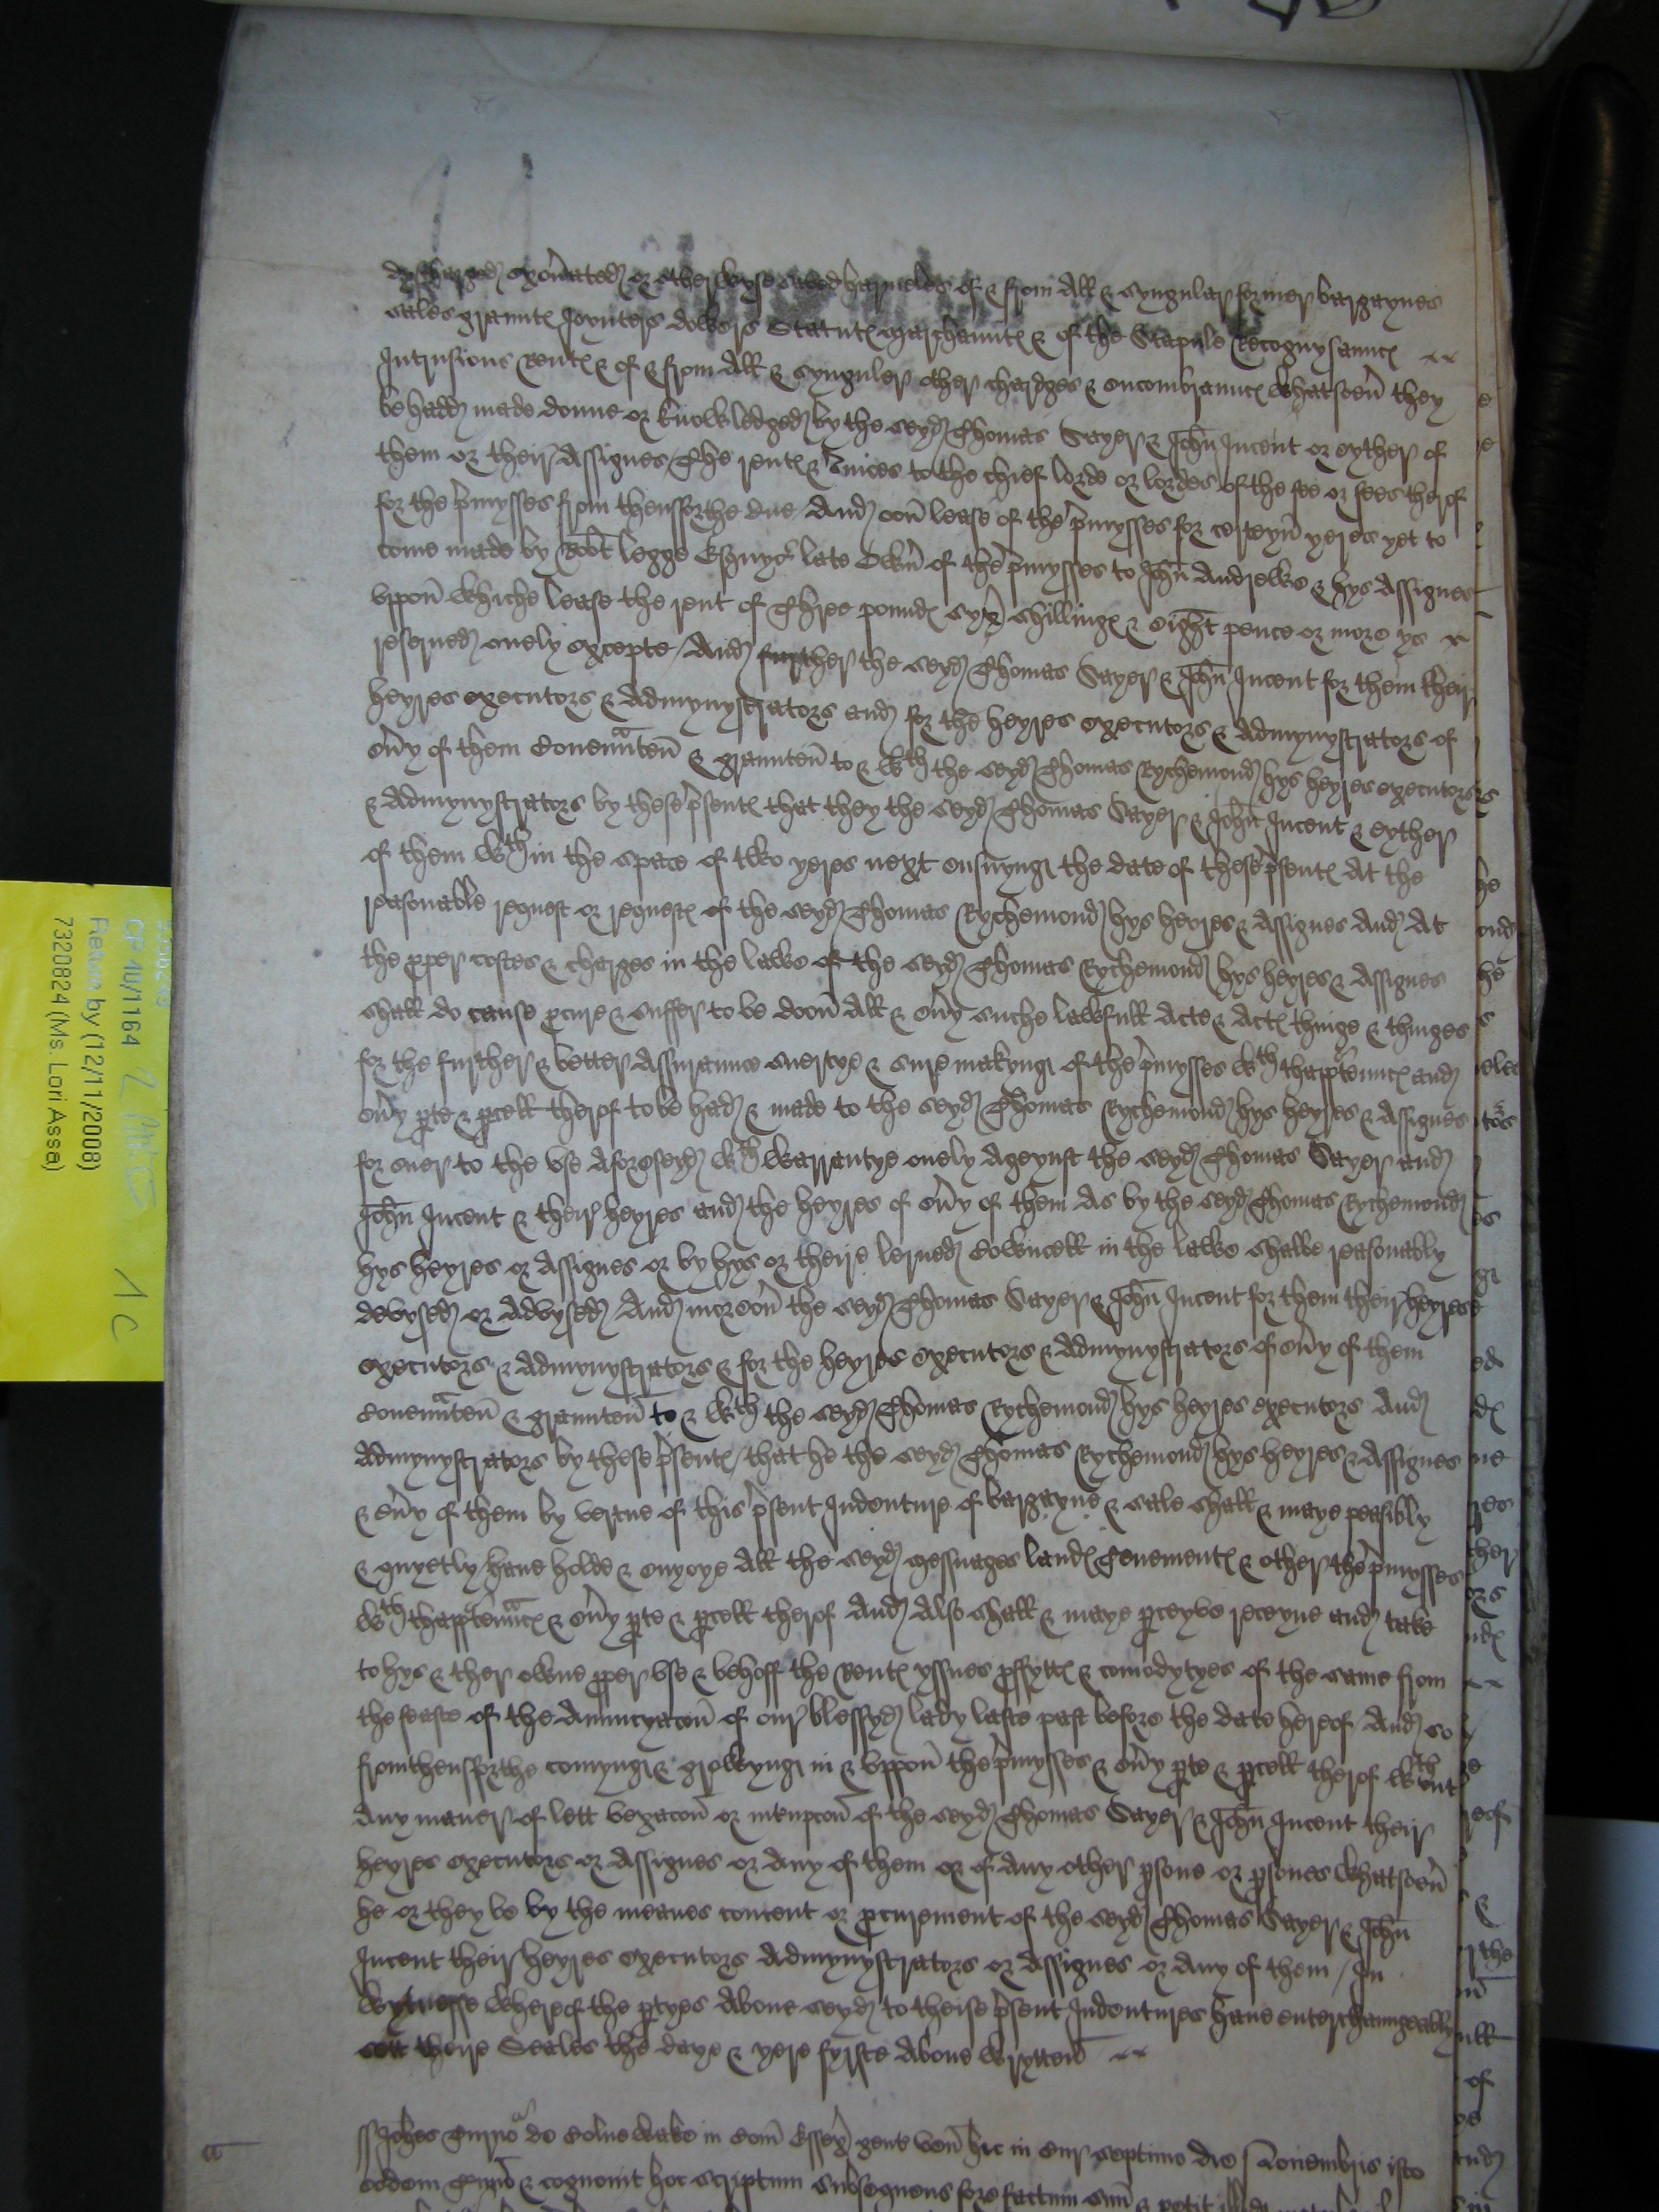 dyscharged exon'ated or otherwyse saved harmeles of & from all & synguler former bargaynes
sales graunt(es) Joynters dowers Statut(es) marchaunt(es) & of the Stapule Recognysaunc(es)
Intrusions Rent(es) & of & from all & synguler other chardges & encombraunc(es) whatsoeu' they
be hadd made donne or knowledged by the seyd Thomas Sayer & John Incent or eyther of
them or their assignes / The rent(es) & s'uices to the chief lorde or lordes of the fee or fees therof
for the p'mysses from thensforthe due / And oon lease of the p'mysses for certeyn yeres yet to
come made by Rob't legge Esquyer late Own' of the p'mysses to John Andrewes & hys assignes
vppon whiche lease the rent of Three pound(es) syx shilling(es) & eight pence or more ys
reserued onely excepte / And further the seyd Thomas Sayer & John Incent for them their
heyres executors & admynystrators and for the heyres executors & admynystrators of
eu'y of them Couen'nten & graunten to & wth the seyd Thomas Rychemond hys heyres executors
& admynystrators by these p'sent(es) that they the seyd Thomas Sayer & John Incent & eyther
of them wthin the space of two yeres next ensuyng the date of these p'sent(es) At the
reasonable request or request(es) of the seyd Thomas Rychemond hys heyres & assignes And At
the pper costes & charges in the lawe of the seyd Thomas Rychemond hys heyres & assignes
shall do cause pcure & suffer to be doon all & eu'y suche lawfull acte & act(es) thinge & thinges
for the further & better assuraunce suertye & sure makyng of the p'mysses wth thapp'tenunc(es) and
eu'y pte & pcell therof to be had & made to the seyd Thomas Rychemond hys heyres & assignes
for euer to the vse aforeseyd wth warrantye onely ageynst the seyd Thomas Sayer and
John Incent & their heyres and the heyres of eu'y of them As by the seyd Thomas Rychemond
hys heyres or assignes or by hys or theire lerned Cowncell in the lawe shalbe reasonably
devysed or advysed And moreou' the seyd Thomas Sayer & John Incent for them their heyres
executors & admynystrators & for the heyres executors & admynystrators of eu'y of them
Couen'nten & graunten to & wth the seyd Thomas Rychemond hys heyres executors And
admynystrators by these p'sent(es) / that he the seyd Thomas Rychemond hys heyres & assignes
& eu'y of them by vertue of this p'sent Indenture of bargayne & sale shall & maye peasibly
& quyetly haue holde & enyoye all the seyd messuages land(es) Tenement(es) & other the p'mysses
wth thapp'tenn'c(es) & eu'y pte & pcell therof And also shall & maye pceyve receyue and take
to hys & ther owne pper vse & behoff the Rent(es) yssues pffytt(es) & comodytyes of the same from
the feaste of the Annuncyacon of our blessyd lady laste past before the date hereof And so
fromthensforthe comyng & growyng in & vppon the p'mysses & eu'y pte & pcell therof wthout
any maner of lett vexacon or int'upcon of the seyd Thomas Sayer & John Incent their
heyres executors or assignes or any of them or of any other psone or psones whatsoeu'
he or they be by the meanes consent or pcurement of the seyd Thomas Sayer & John
Incent their heyres executors admynystrators or assignes or any of them / In
wytnesse whereof the ptyes aboue seyd to theise p'sent Indentures haue enterchaungeably
sett theire Seales the daye & yere fyrste aboue wrytten
Joh'es de Colne Wake in Com' Essex' gent' ven' hic in Cur' septimo die Nouembris isto
eodem & cognouit hoc scriptum subsequens fore factum suu' & petit
CP 40/1164
Return by (12/1/2008)
7320824 (Ms. Lori Asse)
1 C